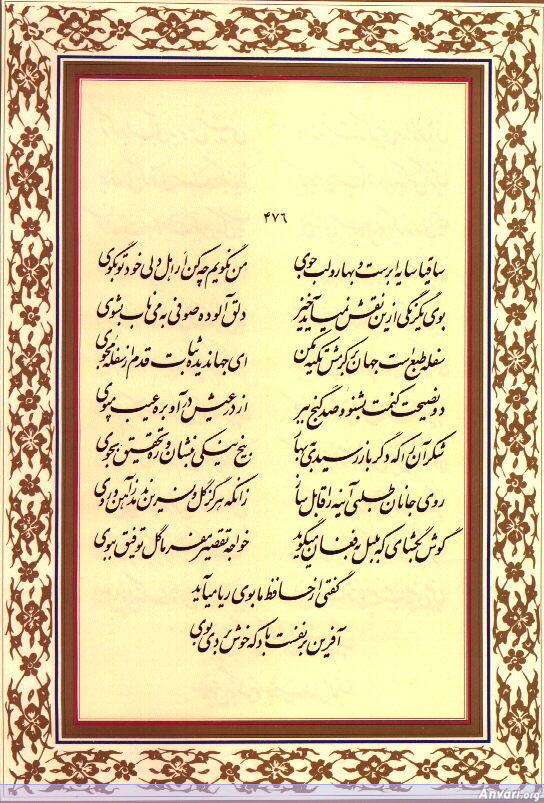 ۴۷۶
ساقیا سایه ابرست و بهار و لب جوی من نگویم چه کن ار اهل دلی خود تو بگوی
بوی یکرنگی ازین نقش نمیآید خیز دلق آلوده صوفی به می ناب بشوی
سفله طبع است جهان بر کرمش تکیه مکن ای جهاندیده ثبات قدم از سفله مجوی
دو نصیحت کنمت بشنو و صد گنج ببر از در عیش درآ و بره عیب مپوی
شکر آن را که دگر باز رسیدی ببهار بیخ نیکی بنشان و ره تحقیق بجوی
روی جانان طلبی آینه را قابل ساز زانکه هرگز گل و نسرین ندمد ز آهن و روی
گوش بگشای که بلبل به فغان میگوید خواجه تقصیر مفرما گل توفیق ببوی
گفتی از حافظ ما بوی ریا میآید
آفرین بر نفست باد که خوش بردی بوی
Anvari.org